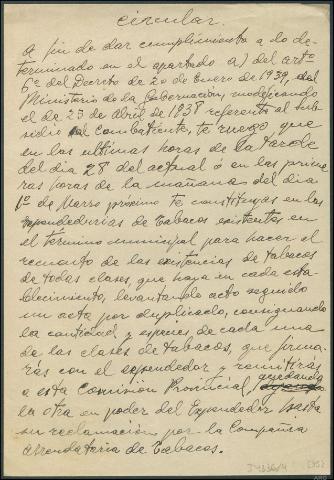 Circular.
A fin de dar cumplimiento a lo de-
terminado en el apartado a) del artº
6º del Decreto de 20 de Enero de 1939, del
Ministerio de la Gobernación, modificando
el de 25 de abril de 1938 referente al sub-
sidio al Combatiente, te ruego que
en las ultimas horas de la tarde
del dia 28 del actual ó en las prime
ras horas de la mañana del dia
1º de Marzo próximo te constituyas en las
Expendedurias de Tabacos existentes en
el término municipal para hacer el
recuento de las existencias de tabacos
de todas clases, que haya en cada esta-
blecimiento, levantando acto seguido
un acta por duplicado, consignando
la cantidad y especies, de cada una
de las clases de tabacos, que firma-
rás con el expendedor y remitirás
a esta Comisión Provincial, quedando
la otra en poder del Expendedor hasta
su reclamación por la Compañia
Arrendataria de Tabacos.